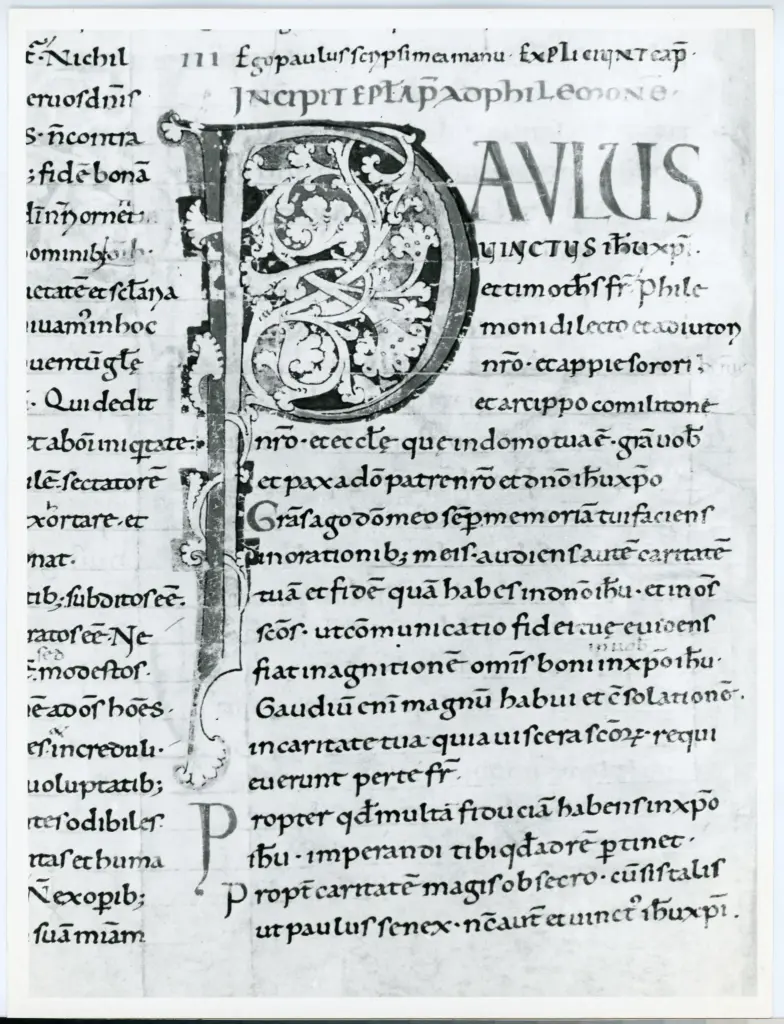 t̄·Nichil
eruosdn̄is
S·n̄contra
;fidē bonā
ominib;
ıetatē et sc̄lāria
uiuam'inhoc
uentūgl̄e
·Qui dedit
et abōi iniq̇tate·
ilē·sectatorē
xortare·et
nat·
tib;·subditos eē·
ratos eē·Ne
sed
modestos·
nē ad ōs hōēs·
es·increduli·
uoluptatib;
ites odibiles·
itas et huma
N̄ exop̄ib;
suā miām
III Ego paulus scripsi mea manu· EXPLICIUNT CAP̄·
INCIPIT EPLA AP AD PHILEMONE·
PAVLUS
VINCTVS ih̄u xp̄i·
et timoth̄s fr̄ Phile
moni dilecto et adiutori
nr̄o·et appie sorori
et arcippo comilitonē
nr̄o·et eccl̄e que in domo tua ē·grā uob̄
et pax a dō patre nr̄o et dn̄o ih̄u xp̄o
Grās ago dō meo sēp̄ memoriā tui faciens
in orationib; meis·audiens autē caritatē
tuā et fidē quā habes in dn̄o ih̄u·et in os̄
sc̄ōs·ut cōmunicatio fidei tue euidens
in uob
fiat in agnitionē omīs boni in xp̄o ih̄u·
Gaudiū enī magnū habui et c̄solationē·
in caritate tua·quia uiscera sc̄oꝝ·requi
euerunt per te fr̄·
Propter qd̄ multā fiduciā habens in xp̄o
ih̄u·imperandi tibi qd̄ ad rē p̄tinet·
Propt̄ caritatē magis obsecro·cū sis talis
ut paulus senex·nc̄ aut̄ et uinct' ih̄u xp̄i·